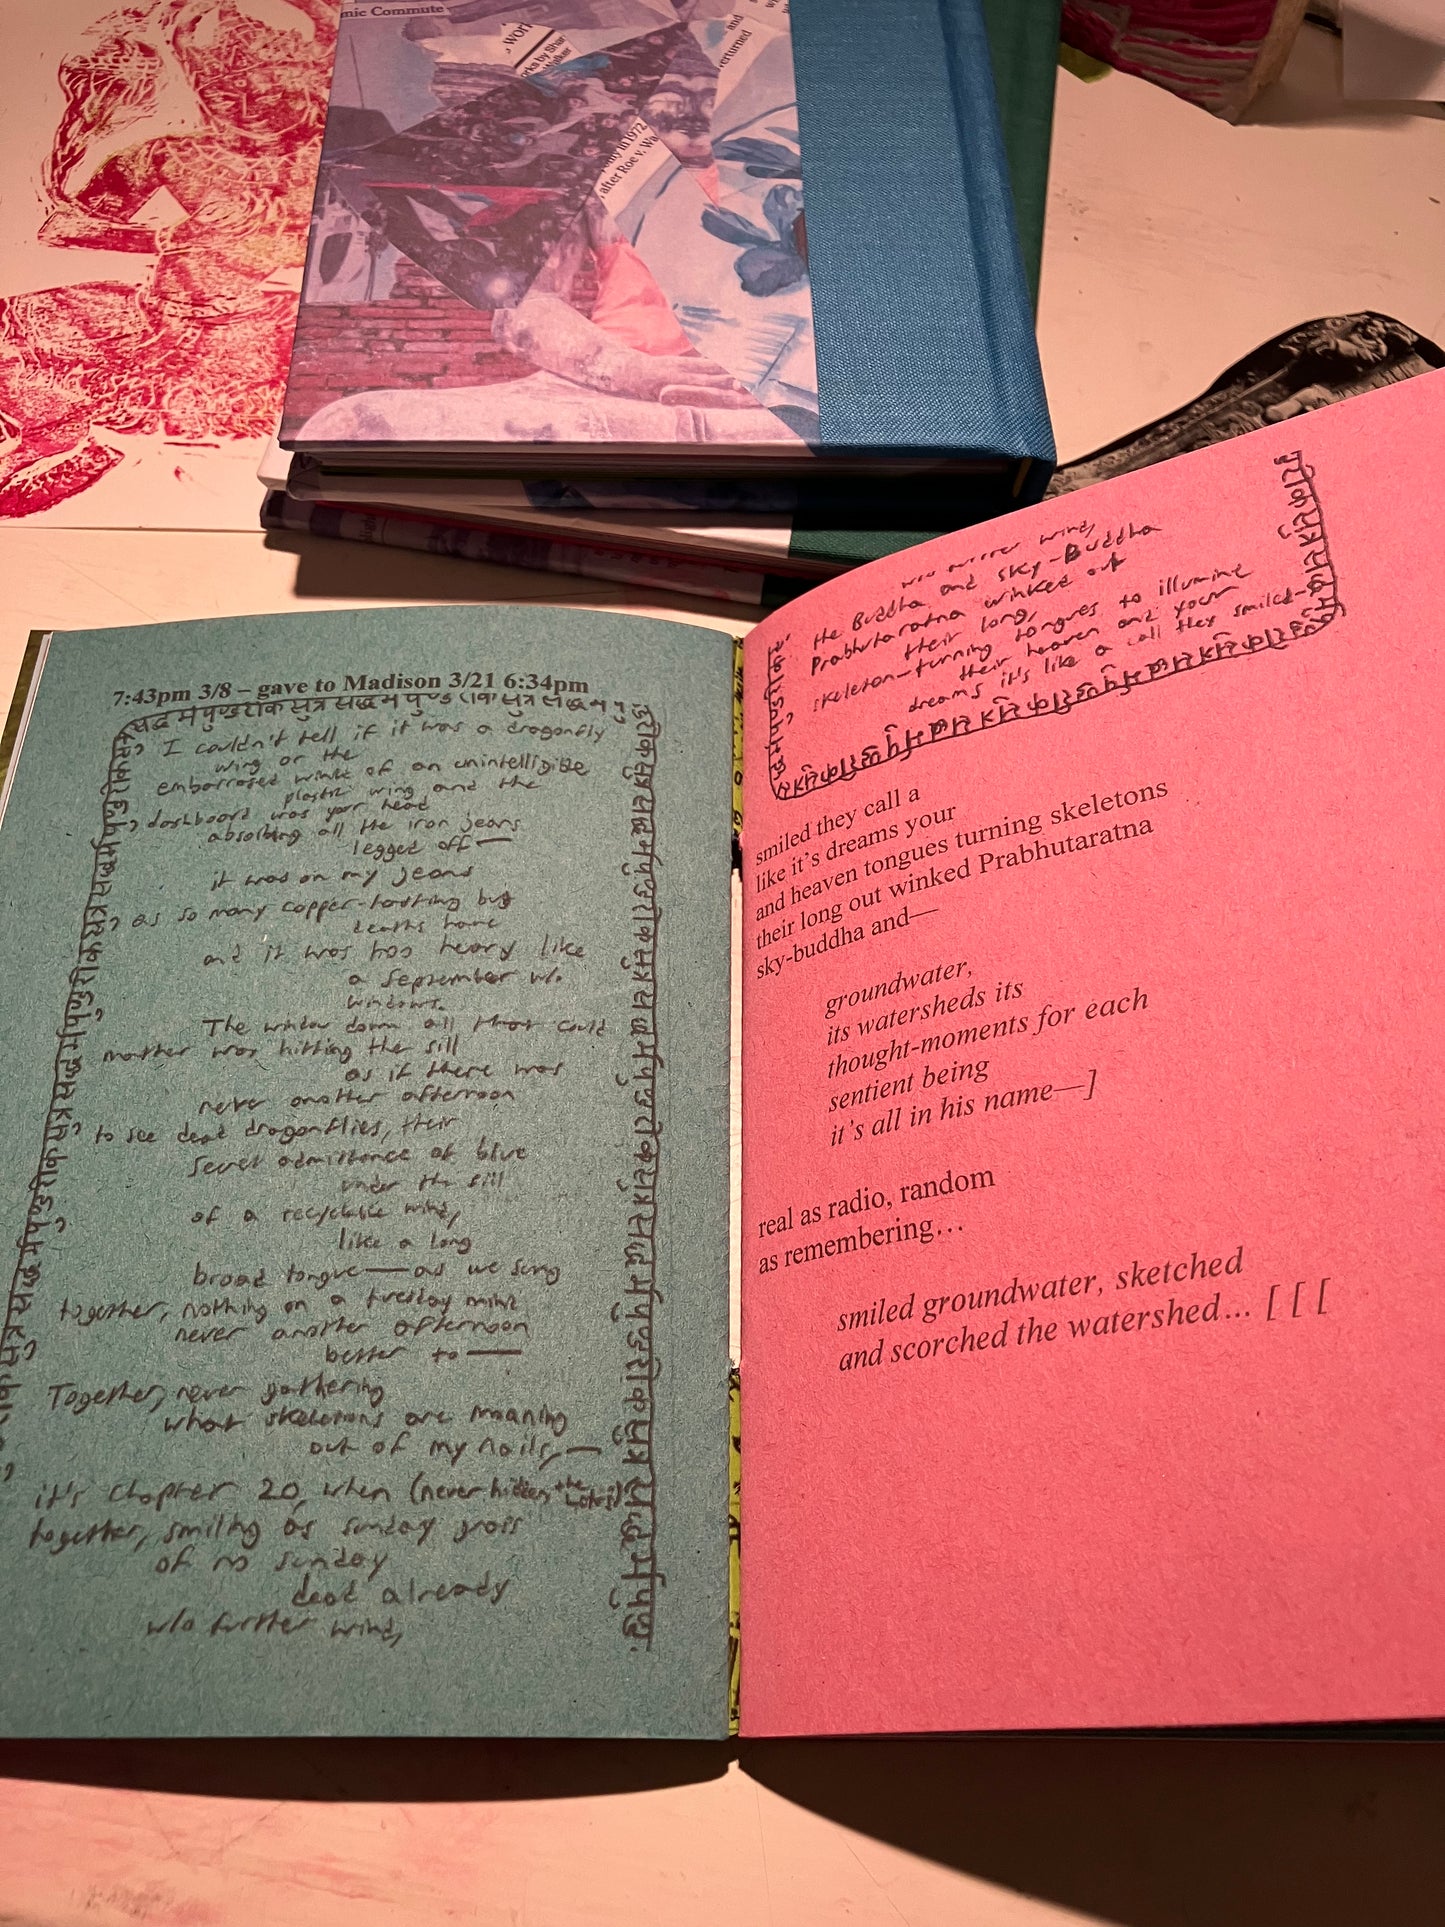 mic Commute
work
rks by Shar
and
returned
in 1972
after Roe v. Wa
7:43pm 3/8 – gave to Madison 3/21 6:34pm
सद्धर्मपुण्डरीकसूत्रसद्धर्मपुण्डरीकसूत्रसद्धर्मपु
I couldn't tell if it was a dragonfly
wing or the
embarrassed wink of an unintelligible
plastic wing and the
dashboard was your head
absorbing all the iron jeans
legged off—
it was on my jeans
as so many copper-tasting bug
deaths have
and it was too heavy like
a September w/o
windows.
The window down all that could
matter was hitting the sill
as if there was
never another afternoon
to see dead dragonflies, their
secret admittance of blue
under the sill
of a recyclable wind,
like a long
broad tongue—as we sung
together, nothing on a tuesday mint
never another afternoon
better to—
Together, never gathering
what skeletons are moaning
out of my nails,—
it's chapter 20, when (never hidden, the
together, smiling as sunday grass
of no sunday
dead already
w/o further wind,
w/o further wind,
the Buddha and sky-Buddha
Prabhutaratna winked out
their long,
skeleton-turning tongues to illumine
their heaven and your
dreams it's like a call they smiled—
smiled they call a
like it's dreams your
and heaven tongues turning skeletons
their long out winked Prabhutaratna
sky-buddha and—
groundwater,
its watersheds its
thought-moments for each
sentient being
it's all in his name—]
real as radio, random
as remembering…
smiled groundwater, sketched
and scorched the watershed… [ [ [